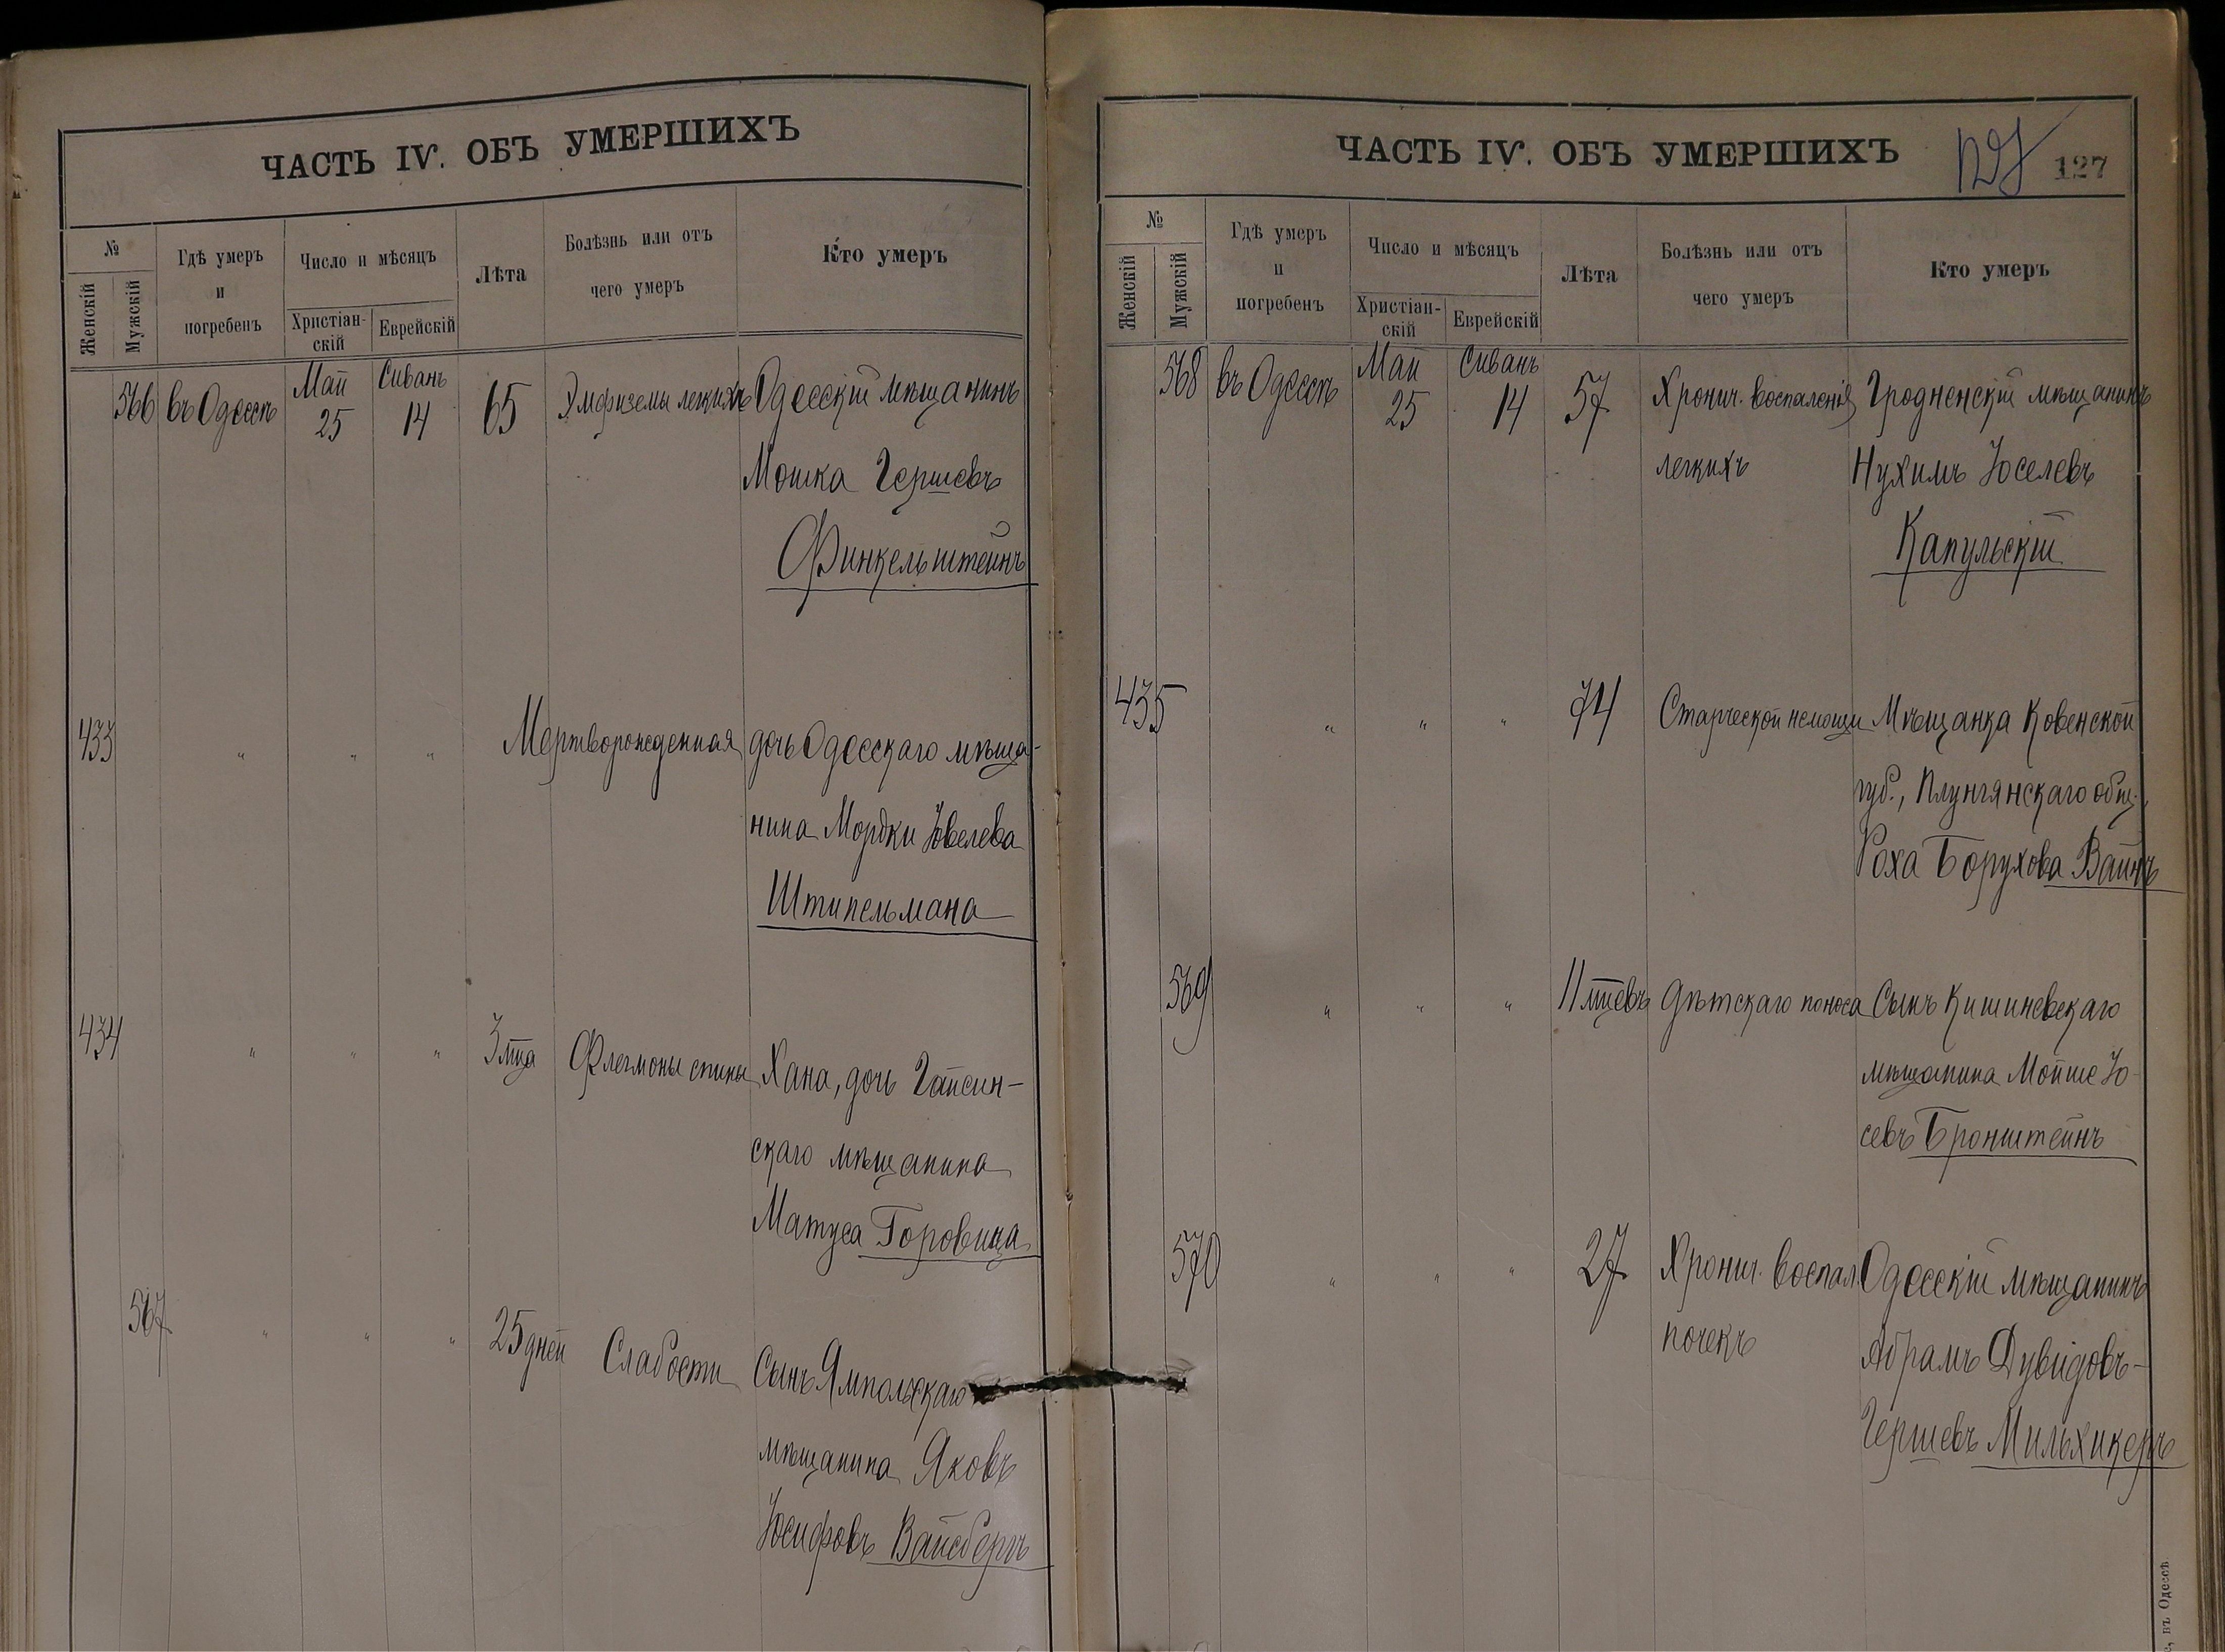 ЧАСТЬ IV. ОБЪ УМЕРШИХЪ
№
Женскій
Мужскій
Гдѣ умеръ
и
погребенъ
Число и мѣсяцъ
Христіан-
скій
Еврейскій
Лѣта
Болѣзнь или отъ
чего умеръ
Кто умеръ
566 въ Одессѣ Май 25 Сиванъ 14 65 Эмфиземы легкихъ Одесскій мѣщанинъ
Мошка Гершевъ
Финкельштейнъ
433 " " " Мертворожденная дочь Одесскаго мѣща-
нина Мордки Іовелева
Штипельмана
434 " " " 3 мца Флегмоны спины Хана, дочь Гайсин-
скаго мѣщанина
Матуса Горовица
567 " " " 25 дней Слабости Сынъ Ямпольскаго
мѣщанина Яковъ
Іосифовъ Вайсбергъ
ЧАСТЬ IV. ОБЪ УМЕРШИХЪ
127
127
№
Женскій
Мужскій
Гдѣ умеръ
и
погребенъ
Число и мѣсяцъ
Христіан-
скій
Еврейскій
Лѣта
Болѣзнь или отъ
чего умеръ
Кто умеръ
568 въ Одессѣ Май 25 Сиванъ 14 57 Хронич. воспаленія Гродненскій мѣщанинъ
легкихъ Нухимъ Іоселевъ
Капульскій
435 " " " 74 Старческой немощи Мѣщанка Ковенской
губ., Плунгянскаго общ.,
Роха Борухова Вайнъ
569 " " " 11 мцевъ Дѣтскаго поноса Сынъ Кишиневскаго
мѣщанина Мойше Іо-
севъ Бронштейнъ
570 " " " 27 Хронич. воспал. Одесскій мѣщанинъ
почекъ Абрамъ Дувидовъ-
Гершевъ Мильхикеръ
въ Одессѣ.